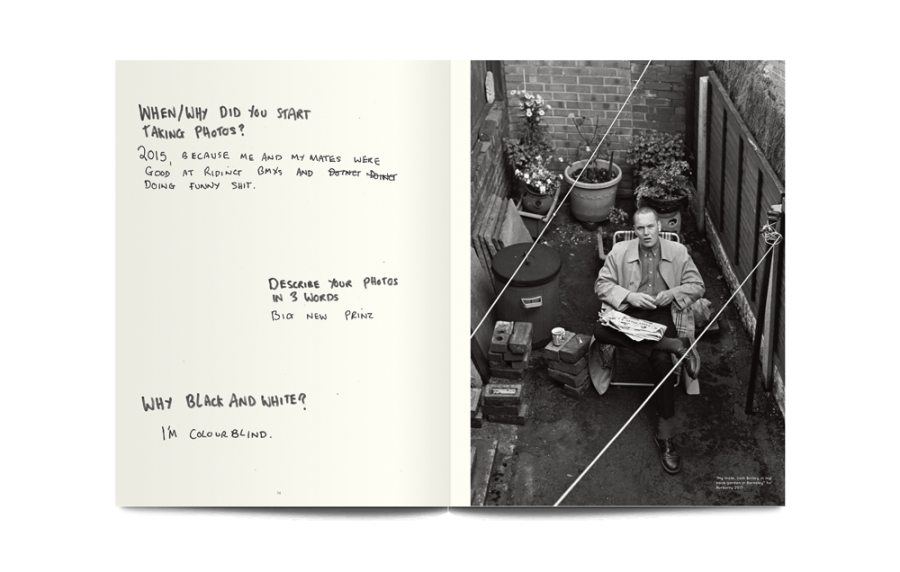 WHEN/WHY DID YOU START
TAKING PHOTOS?
2015, BECAUSE ME AND MY MATES WERE
GOOD AT RIDING BMXs AND
DOING FUNNY SHIT.
DESCRIBE YOUR PHOTOS
IN 3 WORDS
BIG NEW PRINZ
WHY BLACK AND WHITE?
I'M COLOURBLIND.